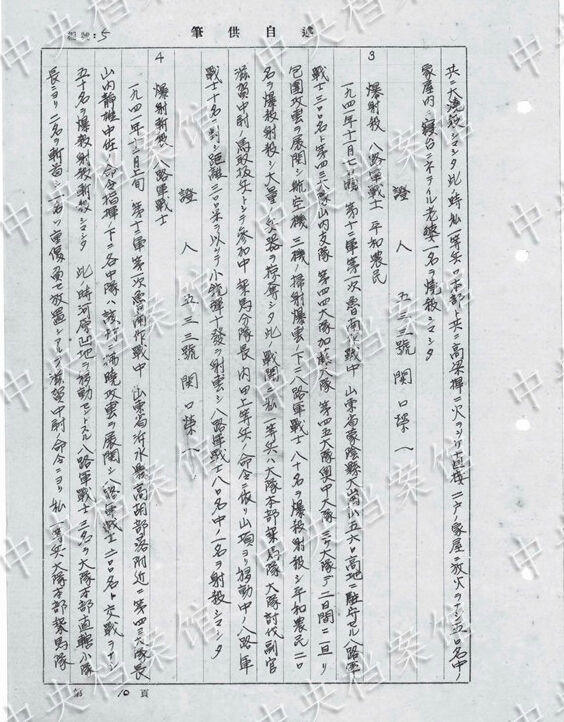 述自供筆
5
共ニ大燒殺シマシタ此ノ時私一等兵ハ本部ト共ニ高梁桿ニ火ヲツケ十七棟一戸ノ家屋ニ放火ヲナシ五〇名中ノ
家屋内ノ寝台ニネテイル老婆一名ヲ燒殺シマシタ
證人 五三三號 関口榮一
3 爆射殺 八路軍戰士 平和農民
一九四一年十一月七日 第十二軍第一次魯南作戰中 山東省蒙陰縣大崮八五六〇高地ニ駐守セル八路軍
戰士三〇〇名ト第四三大隊山内支隊 第四四大隊加藤大隊 第四五大隊奥中大隊 三ケ大隊デ二日間ニ亘リ
包圍攻雲ヲ展開シ航空機三機ノ掃射爆雲ノ下ニ八路軍戰士八十名ヲ爆殺射殺シ平和農民二〇
名ヲ爆殺射殺シ大量ノ兵器ヲ掠奪シタ此ノ戰闘ニ私一等兵ハ大隊本部架馬隊大隊討伐副官
滋賀中尉ノ馬取扱兵トシテ参加中 架馬分隊長 内田上等兵ノ命令ニ依リ山頂ヨリ移動中ノ八路軍
戰士十名ニ對シ距離三〇〇米ヲ以ッテ小銃彈十發ヲ射雲シ八路軍戰士八〇名中ノ一名ヲ射殺シマシタ
證人 五三三號 関口榮一
4 爆射斬殺 八路軍戰士
一九四一年十一月上旬 第十二軍第一次魯南作戰中 山東省沂水縣高胡部落附近ニ第四三大隊長
山内静雄中佐ノ命令指揮ノ下ニ各中隊ハ該村ニ拂曉攻雲ヲ展開シ八路軍戰士二〇〇名ト交戰ヲナシ
五十名ヲ爆殺射殺斬殺シマシタ 此ノ時河原辺地ヲ移動セントスル八路軍戰士三名ヲ大隊本部直轄小隊
長ニヨリ二名ヲ斬首シ一名ハ重傷負セ放置シアルノヲ滋賀中尉ノ命令ニヨリ私一等兵大隊本部架馬隊
第 10 頁
中央档案馆